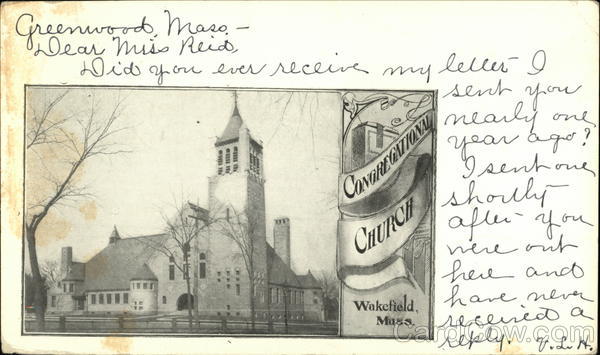 Greenwood, Mass.—
Dear Miss Reid
Did you ever receive my letter I
sent you
nearly one
year ago?
I sent one
shortly
after you
were out
here and
have never
received a
reply. F.L.H.
CONGREGATIONAL
CHURCH
Wakefield,
Mass.
CardCow.com